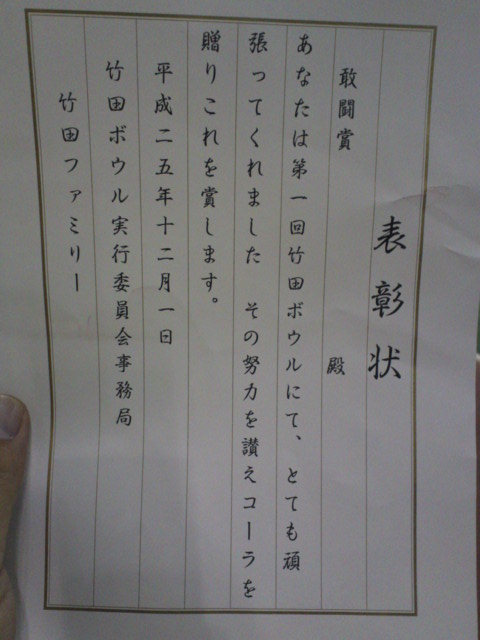 表彰状
敢闘賞　殿
あなたは第一回竹田ボウルにて、とても頑
張ってくれました　その努力を讃えコーラを
贈りこれを賞します。
平成二五年十二月一日
竹田ボウル実行委員会事務局
竹田ファミリー